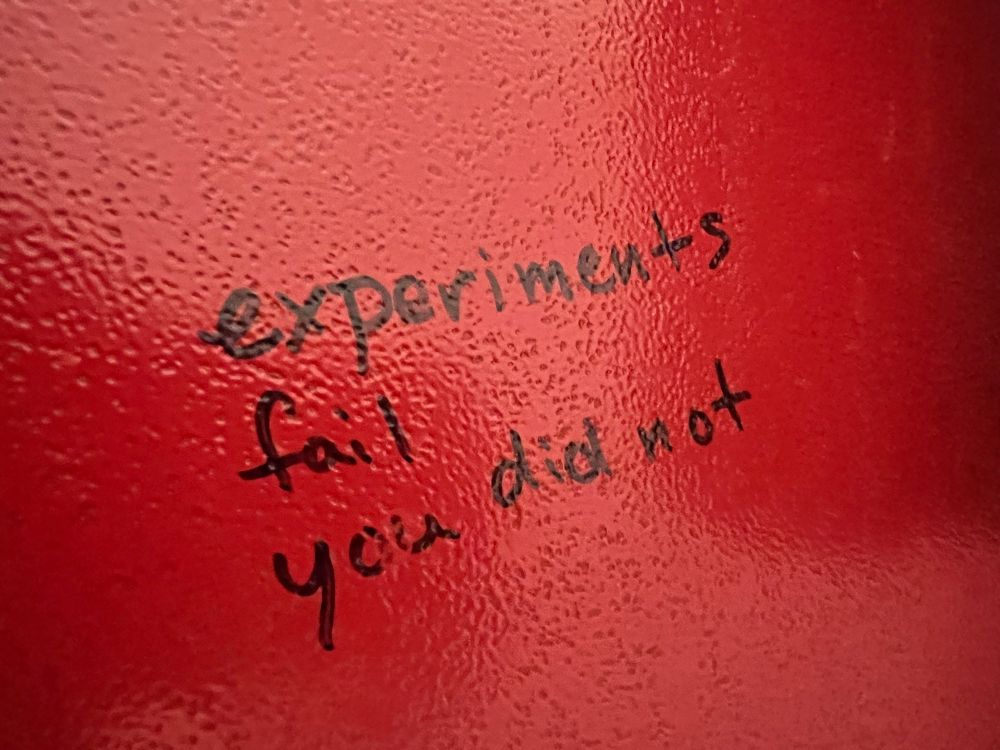 experiments
fail
you did not